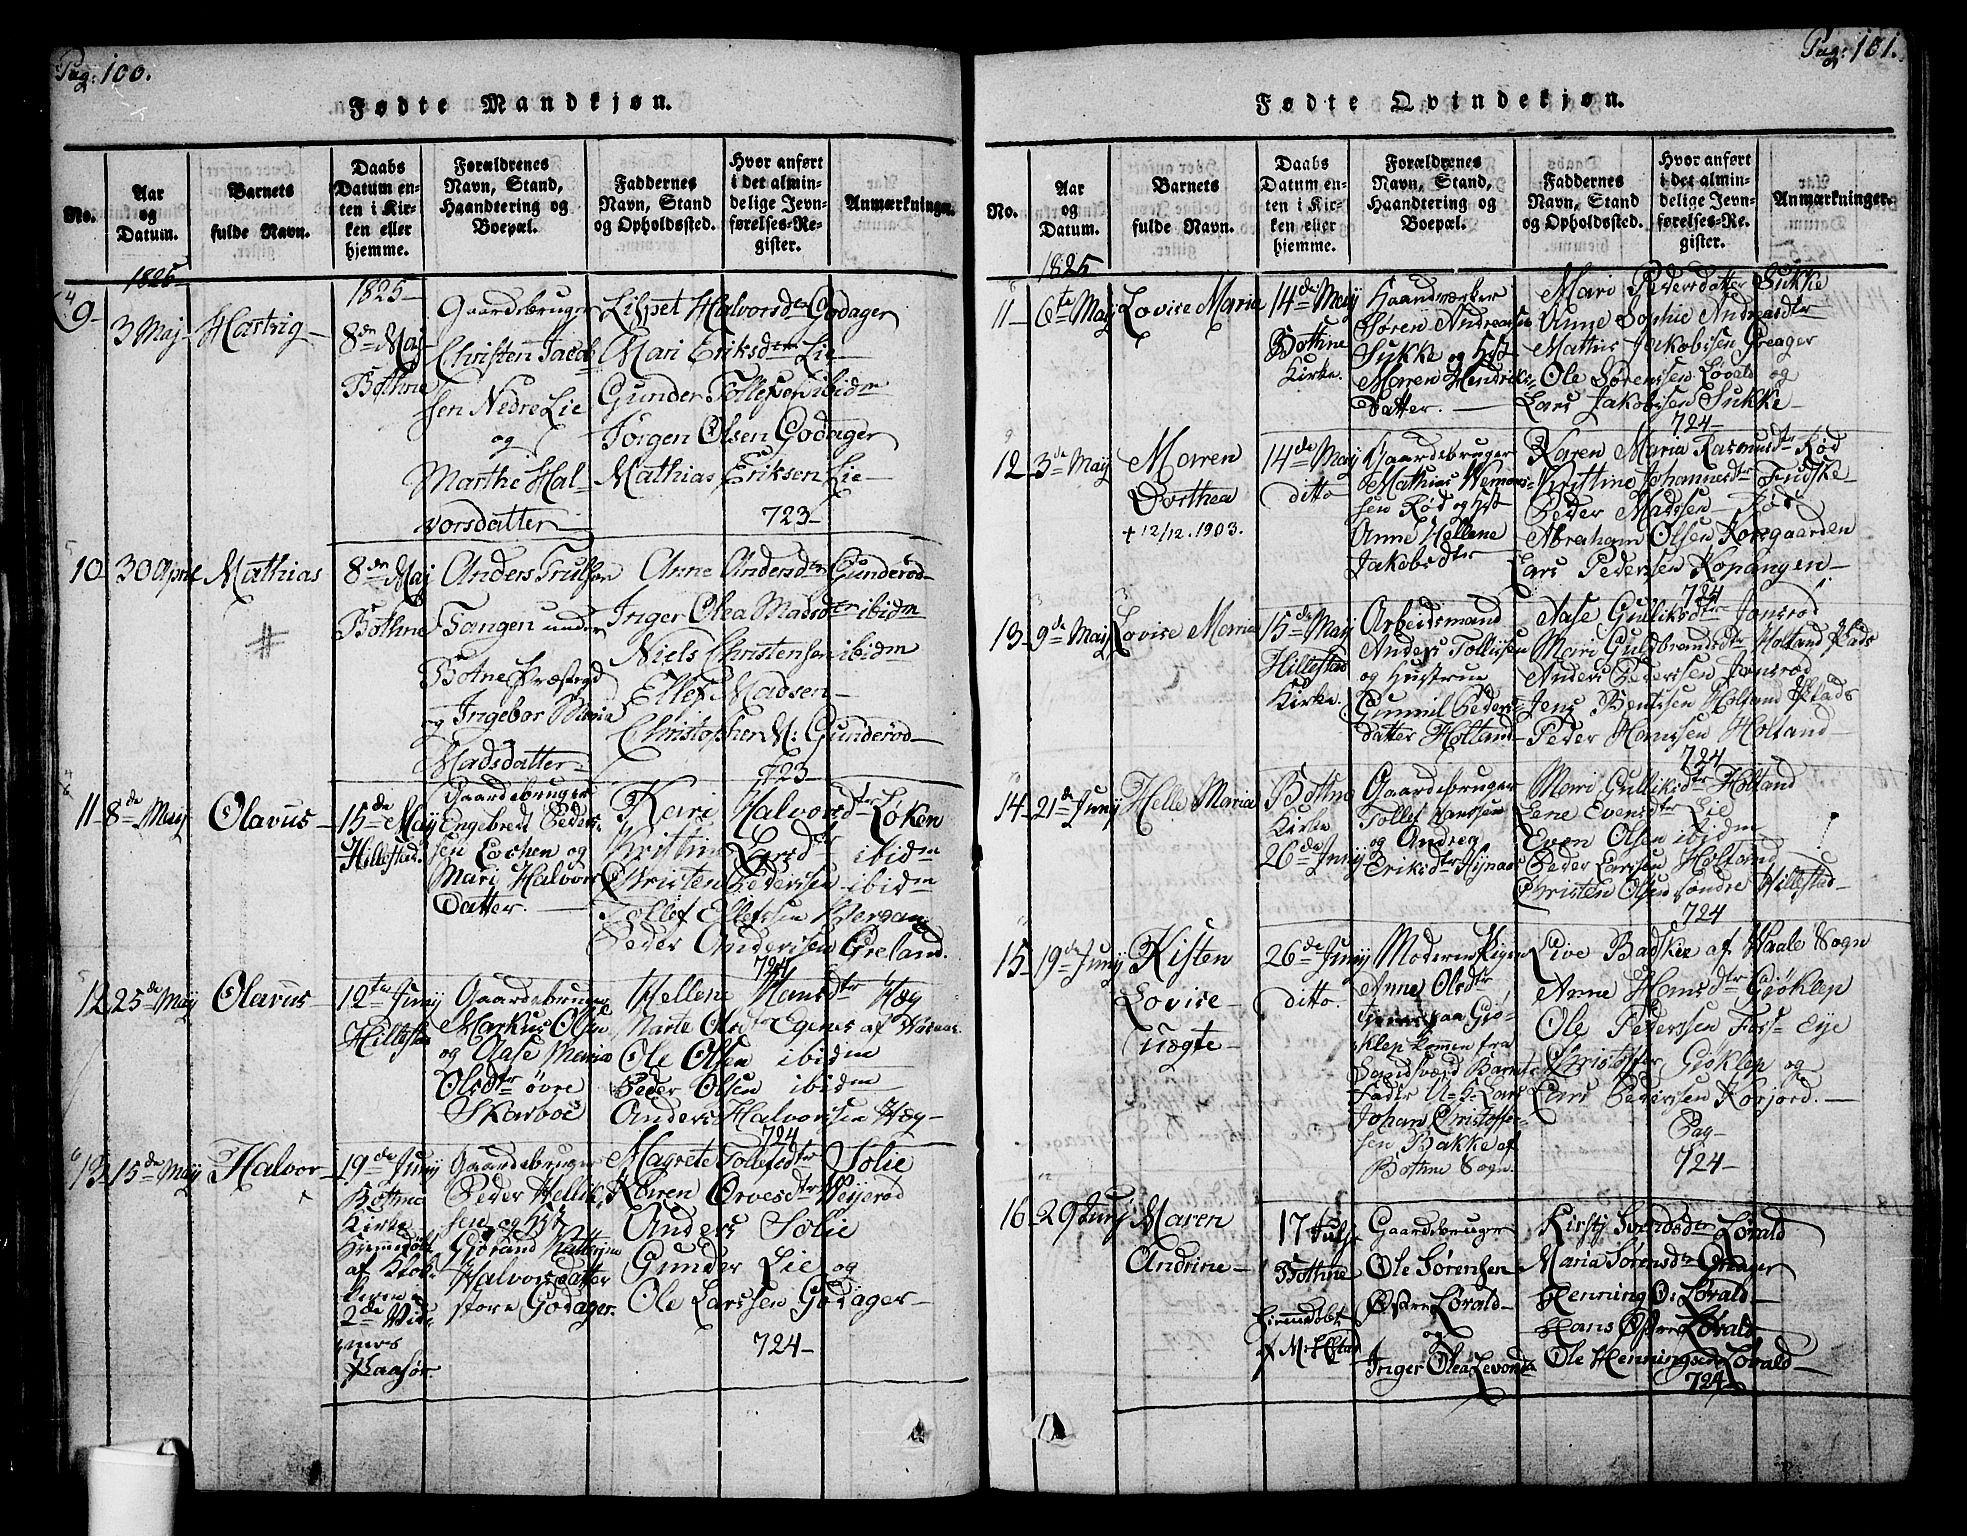 Pag: 100.
Fødte Mandkjøn.
No.
Aar og Datum.
Barnets fulde Navn.
Daabs Datum enten i Kirken eller hjemme.
Forældrenes Navn, Stand, Haandtering og Boepæl.
Faddernes Navn, Stand og Opholdssted.
Hvor anført i det almindelige Jevnførelses-Register.
Anmærkninger.
1825
1825
9
3 Maj
8de Maj
Bothne
Gaardebruger
Christen Jacob
sen Nedre Lie
og
Marthe Hal-
vorsdatter
Lispet Halvorsdr Godager
Mari Eriksdtr Lie
Gunder Tollefsen ibidm
Jørgen Olsen Godager
Mathias Eriksen Lie
723
10
30 April
Mathias
#
8de Maj
Bothne
Anders Trulsen
Tangen under
Botne Præstegd
og Ingebor Maria
Madsdatter
Anne Andersdr Gunderød
Inger Olea Madsdtr ibidm
Niels Christensen ibidm
Ellef Madsen
Christopher M: Gunderød
723
11
8de Maij
Olavus
15de Maij
Hillestad.
Gaardebruger
Engebret Peder-
sen Løchen og
Mari Halvors
Datter.
Kari Halvorsdtr Løken
Kristine Larsdtr ibidm
Christen Pederssen ibidm
Tollef Ellefssen Bergan
Peder Anderssen Greland.
724
12
25de Maij
Olavus
12te Junij
Hillestad
Gaardebruger
Markus Olsen
og Aase Maria
Olsdtr øvre
Skarboe
Hellene Hansdtr Hæg
Marte Olsdtr Egenes af
Ole Olsen ibidm
Peder Olsen ibidm
Anders Halvorssen Hæg
724
13
15de Maij
Halvor
19de Junij
Bothne
Kirke
Hjemmedøbt
af Klok-
keren
2de Vid-
ners
Paasør.
Gaardebruger
Peder Hellik-
sen og Hst
Gjørand Kattrine
Halvorsdatter
store Godager.
Magrete Tollefsdtr Solie
Karen Orvesdtr Weyerød
Anders Solie
Gunder Lie og
Ole Larssen Godager
724
Pag: 101.
Fødte Qvindekjøn.
No.
Aar og Datum.
Barnets fulde Navn.
Daabs Datum enten i Kirken eller hjemme.
Forældrenes Navn, Stand, Haandtering og Boepæl.
Faddernes Navn, Stand og Opholdssted.
Hvor anført i det almindelige Jevnførelses-Register.
Anmærkninger.
1825
11
6te Maij
Lovise Maria
14de Maij
Bothne
Kirke.
Haandværker
Søren Andreasen
Sukke og Hst
Maren Hendriks-
Datter.
Mari Pedersdatter Sukke
Anne Sophie Andreasdtr
Mathis Jakobsen Greager
Ole Sørenssen Lovald og
Lars Jakobssen Sukke
724
12
3de Maij
Maren
Dorthea
+ 12/12. 1903.
14de Maij
ditto
Gaardebruger
Mathias Werners-
sen Rød og Hst
Anne Hellene
Jakobsdtr
Karen Maria Rasmusdtr Rød
Kristine Johannesdtr Fuske
Peder Madssen Rød
Abraham Olsen Korsgaarden
Lars Pederssen Kopangen
724
13
9de Maij
Lovise Maria
15de Maij
Hillestad
Kirke.
Arbeidsmand
Anders Tollissen
og Hustrue
Gunnil Peders-
datter Holtand
Aase Gulliksdtr Jonsrød
Mari Guldbrandsdtr Holtand Plads
Anders Pederssen Jonsrød
Jens Bentssen Holtand Plads
Peder Hanssen Holtand
724
14
21de Junij
Helle Maria
Bothne
Kirke
26de Junij
Gaardebruger
Tollef Hanssen
og Andrea
Eriksdtr Hynaas
Mari Gulliksdtr Holtand
Lene Evensdtr Lie
Even Olsen ibidm
Peder Larssen Holtand
Christen Olsen søndre Hillestad
724
15
19de Junij
Kisten
Lovise
Uægte
26de Junij
ditto
Moderen Pigen
Anne Olsdtr
paa Giø-
klep kommen fra
Sandsværd Barnets
Fader U=K= Lars
Johan Christoffer-
sen Bakke af
Bothne Sogn.
Live Badsker af Waale Sogn
Anne Hansdtr Giøklep
Ole Pederssen Foss Eye
Christoffer Giøklep og
Lars Pederssen Korsjord.
Pag
724
16
29 Junj
Maren
Andrine
17 Julj
Bothne
Hjemmedøbt
af M.
Gaardebruger
Ole Sørensen
Østre Lørald
og
Inger Olea Levords
Kirsti Svendsdr Lørald
Maria Sørensdtr Greager
Henning O: Lørald
Hans Østre Lørald
Ole Henningsen Lørald
724